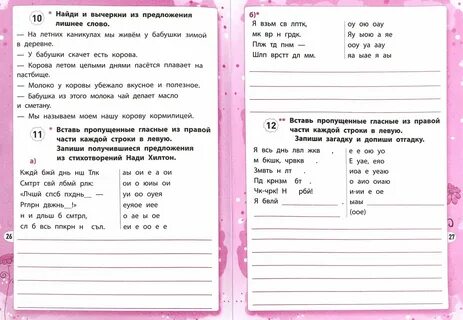 10 Найди и вычеркни из предложения
лишнее слово.
— На летних каникулах мы живём у бабушки зимой
в деревне.
— У бабушки скачет есть корова.
— Корова летом целыми днями пасётся плавает на
пастбище.
— Молоко у коровы убежало вкусное и полезное.
— Бабушка из этого молока чай делает масло
и сметану.
— Мы называем моем нашу корову кормилицей.
11 ** Вставь пропущенные гласные из правой
части каждой строки в левую.
Запиши получившиеся предложения
из стихотворений Нади Хилтон.
а)
Кждй бжй днь нш Тлк аы ои е а ои
Смтрт свй лбмй рлк: ои о юиы ои
«Пчшй спсб пхднь — уи оо оуея
Ргпрн двжнь__!» еуяое иее
н и дльш б смтрл, о ае ы ое
сл б всь ппкрн н съл. еи оо а е е
26
б)*
Я взъм св лптк, оу ою оау
мк вр н грдк. Яу ыою а яе
Плж тд пнм — ооу уа аау
Шлп врстт дл мм. яа ыае я аы
12 ** Вставь пропущенные гласные из правой
части каждой строки в левую.
Запиши загадку и допиши отгадку.
Я всь днь лвл жкв , е е ою уо
м бкшк, чрвкв . Е уае, еяо
Змвть н лт . иоа е уеаю
Пд крнзм бт . о аио оиаю
Чк-чрк! Н рбй! и-и е оеи
Я бвлй , ыаы
(оое)
27